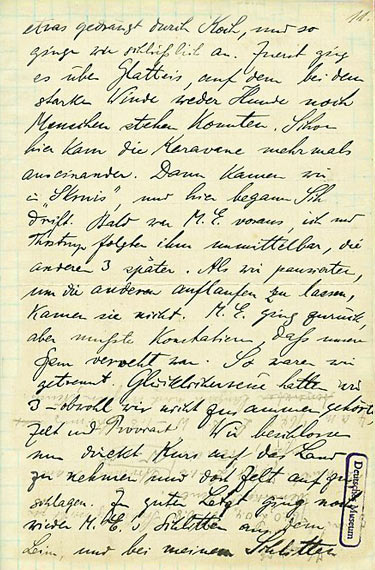 11.
etwas gedrängt durch Koch, und so
gingen wir schließlich an. Zuerst ging
es über Glatteis, auf dem bei dem
starken Winde weder Hunde noch
Menschen stehen konnten. Schon
hier kam die Karavane mehrmals
auseinander. Dann kamen wir
in „Skruis", und hier begann Sch
drift. Bald war M. E. voraus, ich und
Thostrup folgten ihm unmittelbar, die
anderen 3 später. Als wir pausierten,
um die anderen auflaufen zu lassen,
kamen sie nicht. M. E. ging zurück,
aber mußte konstatieren, daß unsere
Spur verweht war. So waren wir
getrennt. Glücklicherweise hatten wir
3 – obwohl wir nicht zusammen gehört
Zelt und Proviant. Wir beschlossen
nun direkt Kurs auf das Land
zu nehmen und dort Zelt aufzu
schlagen. Zu guter Letzt ging noch
wieder M. E.'s Schlitten aus dem
Leim, und bei meinem Schlitten
Deutsches Museum